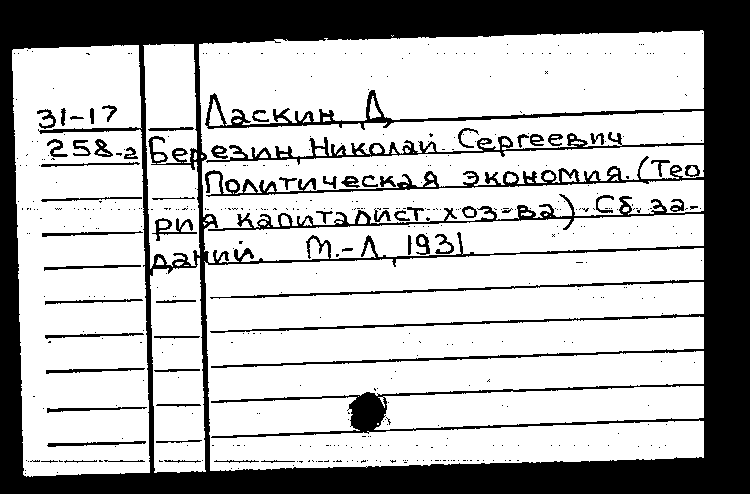 31-17 Ласкин, Д.
258-2 Березин, Николай Сергеевич
Политическая экономия. (Тео-
рия капиталист. хоз-ва). Сб. за-
даний. М.-Л., 1931.